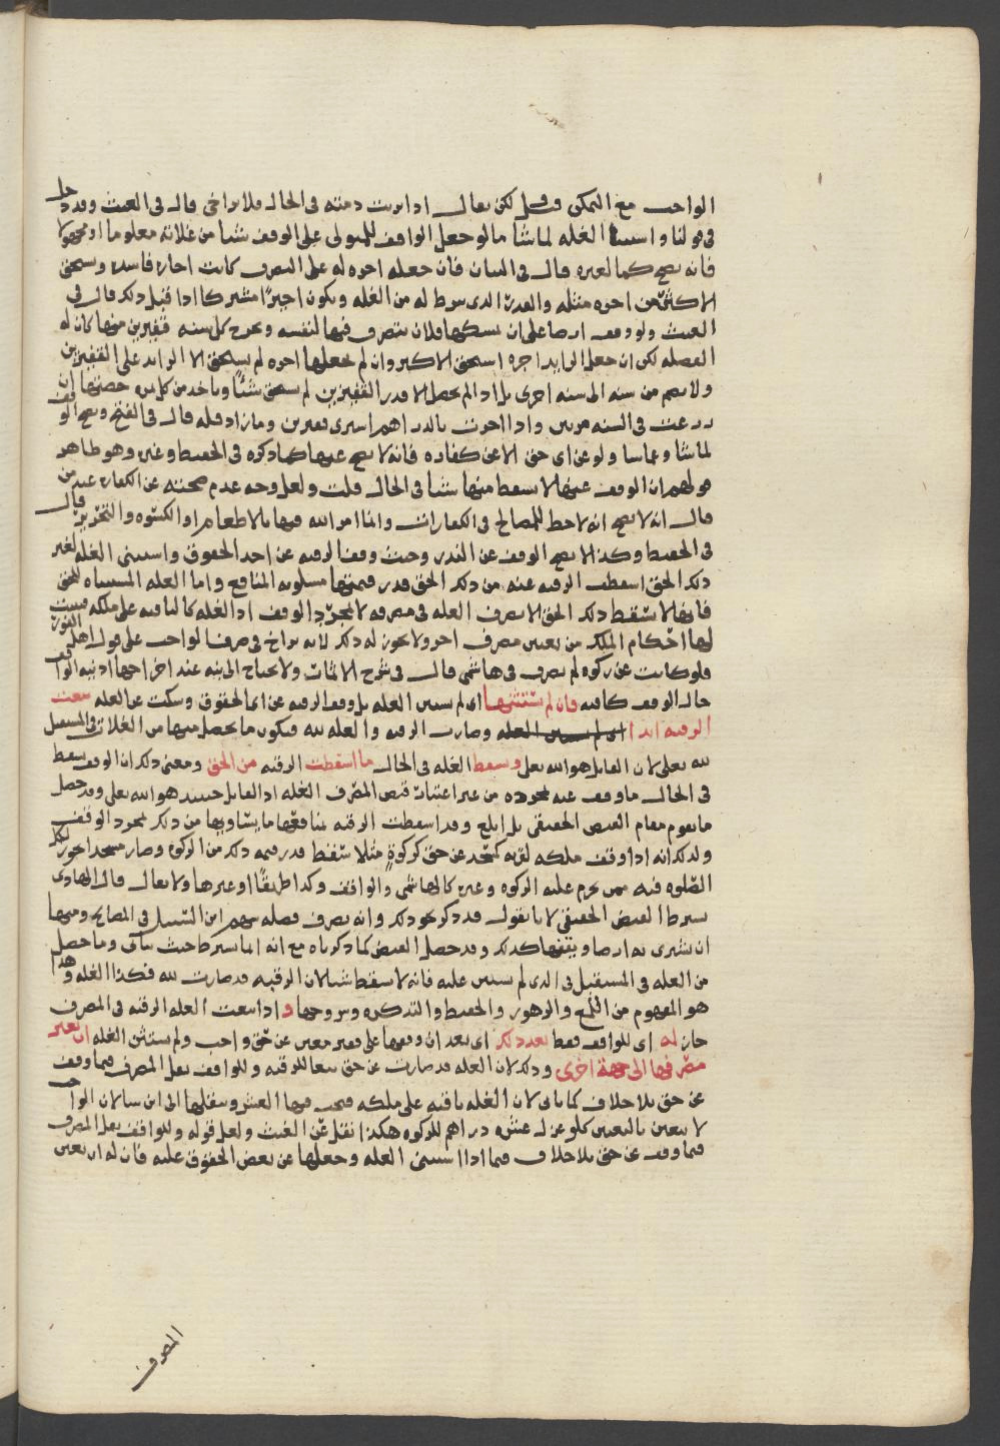 الواجب مع التمكن وقيل لكن يقال اذا بريت ذمته في الحال فلا تراخي قال في الغيث وقد دخل
في قولنا واستثنا الغله لما شا ما لو جعل الواقف للمتولي على الوقف شيا من غلاته معلوما او مجهولا
فانه يصح كما لغيره قال في البيان فان جعله اجره له على التصرف كانت اجاره فاسده ويستحق
الاكثر من اجره مثله والقدر الذي شرط له من الغله ويكون اجيرًا مشتركا اذا قبل ذلك قال في
الغيث ولو وقف ارضا على ان يسكنها فلان يتصرف فيها لنفسه ويخرج كل سنه قفيزين منها كان له
الفضله لكن ان جعل الزايد اجره استحق الاكثر وان لم يجعلها اجره لم يستحق الا الزايد على القفيزين
ولا يتمم من سنه الى سنه اخرى بل اذا لم يحصل الا قدر القفيزين لم يستحق شيًا وياخذ من كل مره حصتها ان
زرعت في السنه مرتين واذا اجرت بالدراهم اشترى قفيزين وما زاد فله قال في الفتح ويصح الوقف
لما شا وعما شا ولو عن اي حق الا عن كفاره فانه لا يصح عنها كما ذكره في الحفيظ وغيره وهو ظاهر
قولهم ان الوقف عنها لا يسقط منها شيا في الحال قلت ولعل وجه عدم صحته عن الكفاره عند من
قال انه لا يصح انه لا حظ للمصالح في الكفارات وانما امر الله فيها بالاطعام او الكسوه والتحرير قال
في الحفيظ وكذا لا يصح الوقف عن النذر وحيث وقف الرقبه عن احد الحقوق واستثنى الغله لغير
ذلك الحق اسقطت الرقبه عنه من ذلك الحق قدر قيمتها مسلوبه المنافع واما الغله المستثناه للحق
فانها لا تسقط ذلك الحق الا بصرف الغله في مصرفه لا بمجرد الوقف اذ الغله كالباقيه على ملكه فيثبت
لها احكام الملك من تعيين مصرف اخر ولا يجوز له ذلك لانه تراخ في صرف الواجب على قول اهل الفور
فلو كانت عن زكوه لم تصرف في هاشمي قال في شرح الاثمات ولا يحتاج الى نيه عند اخراجها اذ نيه الواقف
حال الوقف كافيه فان لم يستثنها اي لم يستثن الغله بل وقف الرقبه عن اي الحقوق وسكت عن الغله تبعت
الرقبه ابدا اي لم يستثن الغله وصارت الرقبه والغله لله فيكون ما يحصل منها من الغلات في المستقبل
لله تعلى لان القابل هو الله تعلى وتسقط الغله في الحال ما اسقطت الرقبه من الحق ومعنى ذلك ان الوقف يسقط
في الحال ما وقف عنه بمجرده من غير اعتبار قبض المصرف الغله اذ القابل حينئذ هو الله تعلى وقد حصل
ما يقوم مقام القبض الحقيقي بل ابلغ وقد اسقطت الرقبه بمنافعها ما يساويها من ذلك بمجرد الوقف
ولذلك انه اذا وقف ملكه لقربه كمسجد عن حق كزكوةٍ مثلا سقط قدر قيمه ذلك من الزكوه وصار مسجدا تجوز لكل
الصلوه فيه ممن يحرم عليه الزكوه وغيره كالهاشمي والواقف وكذا طريقًا او غيرها ولا يقال قال الهادي
بشرط القبض الحقيقي لانا نقول قد ذكر نحو ذلك وانه يصرف فضله سهم ابن السبيل في المصالح ومنها
ان يشترى به ارضا ويقفها كذلك وقد حصل القبض كما ذكرناه مع انه انما يشترط حيث يتاتى وما حصل
من الغله في المستقبل في الذي لم يستثن عليه فانه لا يسقط شيا لان الرقبه قد صارت لله فكذا الغله وهذا
هو المفهوم من اللمع والزهور والحفيظ والتذكره وشروحها و اذا تبعت الغله الرقبه في المصرف
جاز له اي للواقف فقط بعد ذلك اي بعد ان وقفها على فقير معين عن حق واجب ولم يستثن الغله ان يعين
مصرفها الى جهة اخرى وذلك لان الغله قد صارت عن حق تبعا للرقبه وللواقف نقل المصرف فيما وقف
عن حق بلا خلاف كما ياتي لان الغله باقيه على ملكه فيجب فيها العشر وينقلها الى اين شا لان الواجب
لا يتعين بالتعيين كلو عزل عشره دراهم للزكوه هكذا نقل عن الغيث ولعل قوله وللواقف نقل المصرف
فيما وقف عن حق بلا خلاف فيما اذا استثنى الغله وجعلها عن بعض الحقوق عليه فان له ان يعين
المصرف